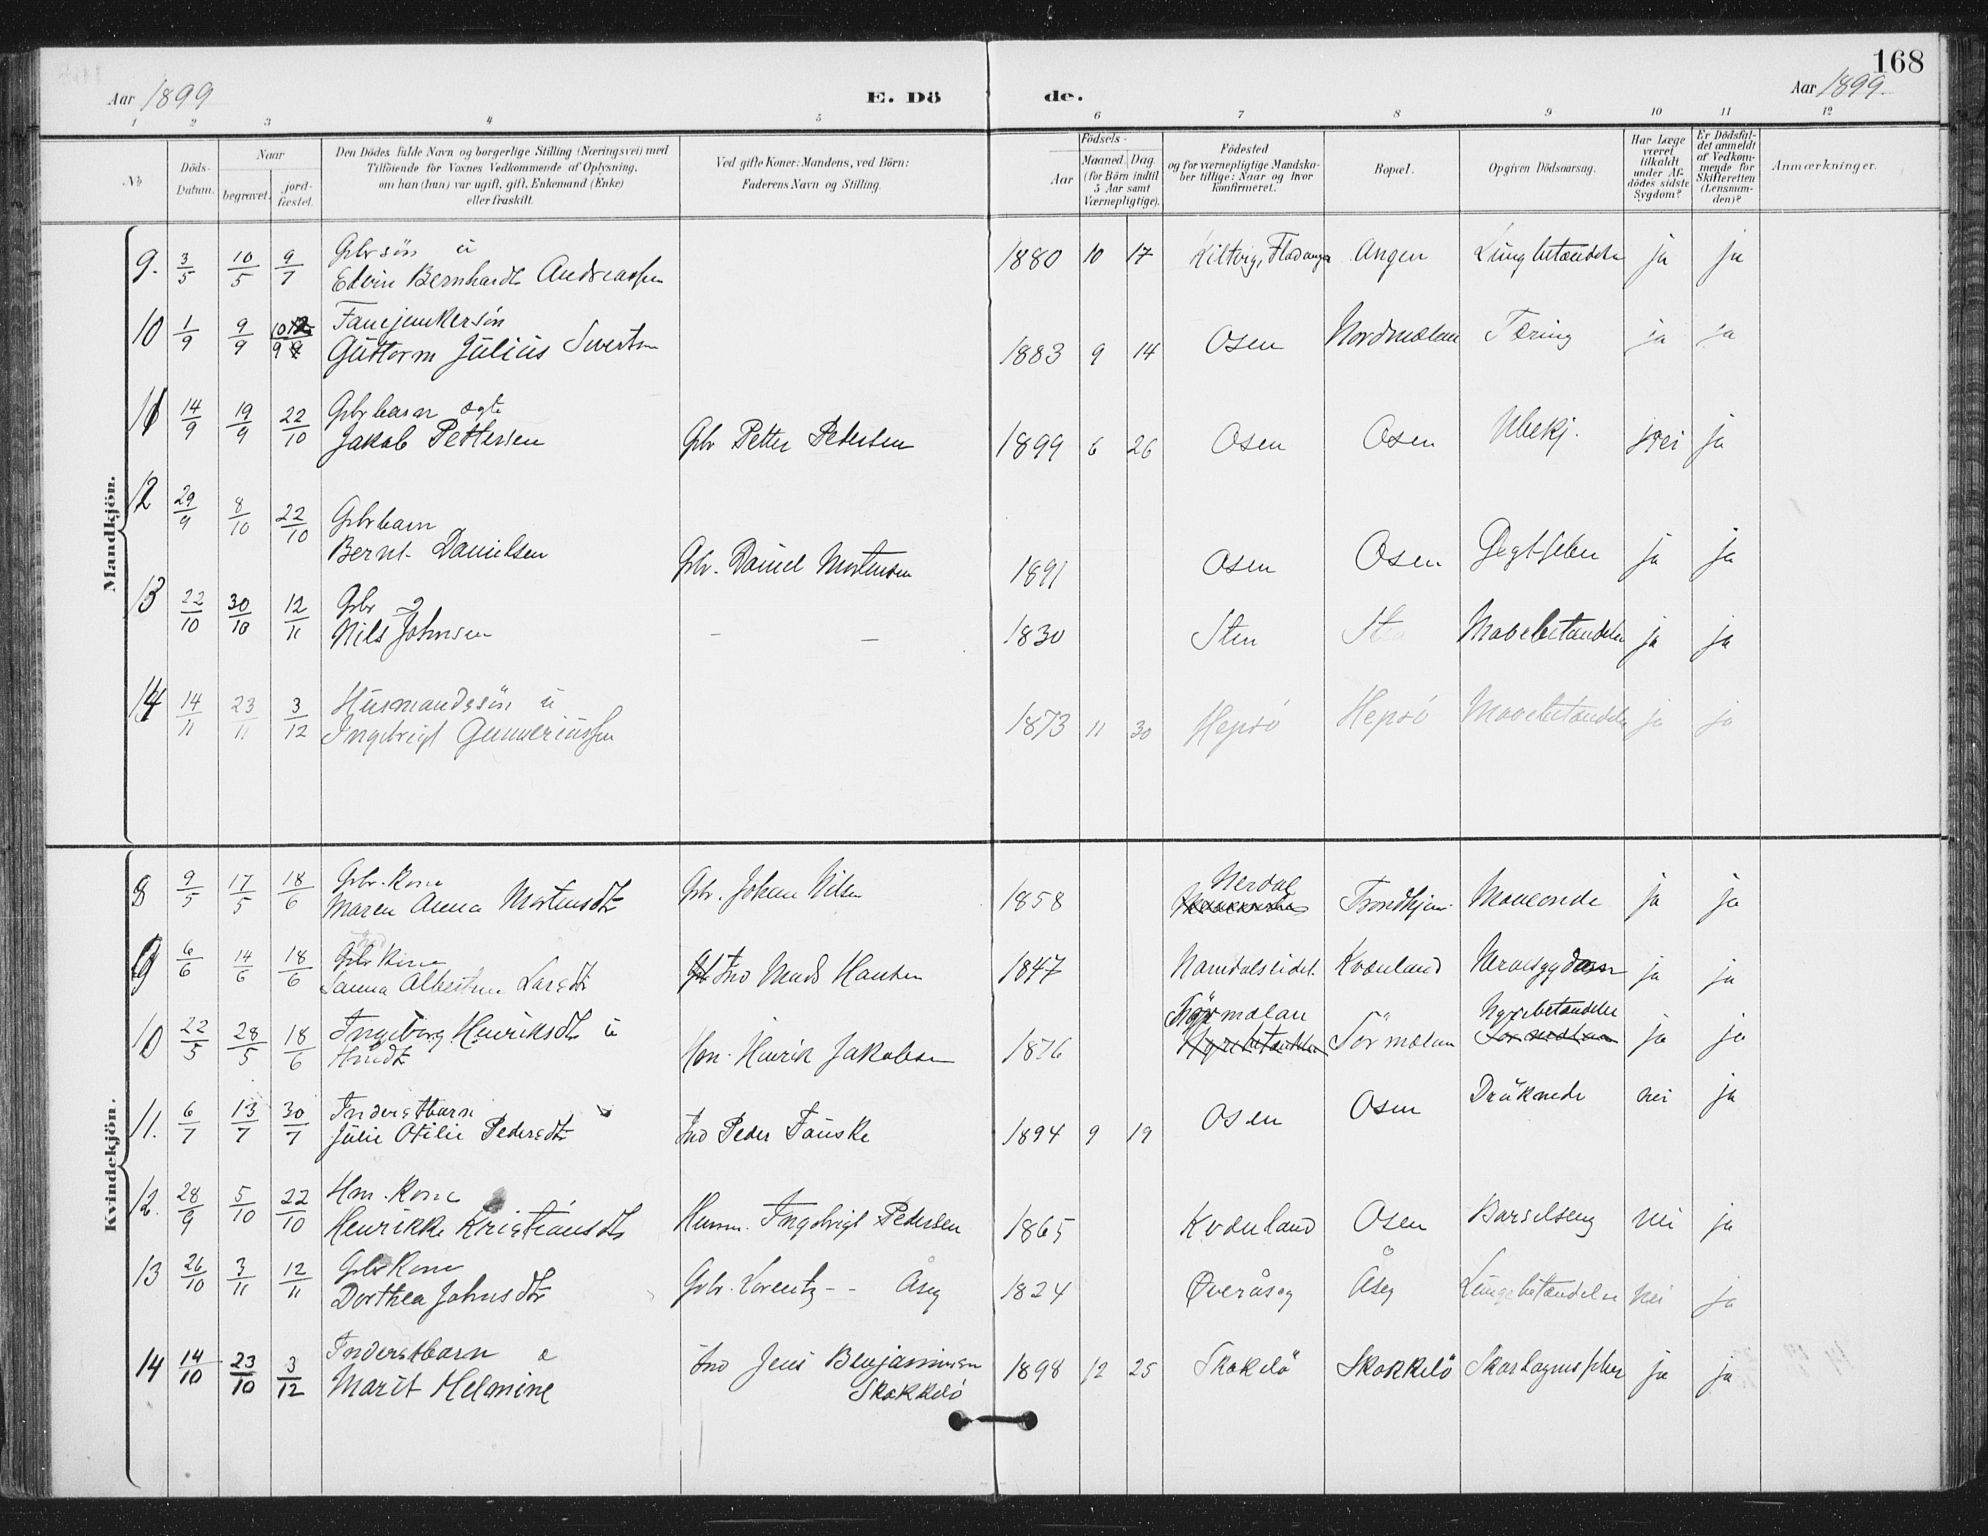 168
Aar 1899
E. Dö
de.
Aar 1899.
1 2 3 4 5 6 7 8 9 10 11 12
No
Döds-
Datum.
Naar
begravet.
jord-
fæstet.
Den Dödes fulde Navn og borgerlige Stilling (Næringsvei) med
Tilföiende for Voxnes Vedkommende af Oplysning,
om han (hun) var ugift, gift, Enkemand (Enke)
eller fraskilt.
Ved gifte Koner: Mandens, ved Börn:
Faderens Navn og Stilling.
Födsels-
Aar
Maaned. Dag.
(for Börn indtil
5 Aar samt
Værnepligtige).
Födested
og for værnepligtige Mandska-
ber tillige: Naar og hvor
konfirmeret.
Bopæl.
Opgiven Dödsaarsag.
Har Læge
været
tilkaldt
under Af-
dödes sidste
Sygdom?
Er Dödsfal-
det anmeldt
af Vedkom-
mende for
Skifteretten
(Lensman-
den)?
Anmærkninger.
Mandkjön.
9. 3/5 10/5 9/7 Gbrsön u
Edvin Bernhardt Andreassen 1880 10 17 Angen Lungbetændelse ja ja
10 1/9 9/9 Fanejunkersön
Guttorm Julius Sivertsen 1883 9 14 Osen Nordmælan Tæring ja ja
11 14/9 19/9 22/10 Gbrbarn ægte
Jakob Pettersen Gbr Petter Pedersen 1899 6 26 Osen Osen Ubekj. nei ja
12 29/9 8/10 22/10 Gbrbarn
Bernt Danielsen Gbr. Daniel Mortensen 1891 Osen Osen Gigtfeber ja ja
13 22/10 30/10 12/11 Gbr
Nils Johnsen – – 1830 Sten Mavebetændelse ja ja
14 14/11 23/11 3/12 Husmandssön u
Ingebrigt Gunneriussen 1873 11 30 Hepsö Hepsö Mavebetændelse ja ja
Kvindekjön.
8 9/5 17/5 18/6 Gbr. kone
Maren Anna Mortensdtr Gbr. Johan Nilsen 1858 Trondhjem Maveonde ja ja
9 6/6 14/6 18/6 Gbr Kone
Sanna Albertine Larsdtr Ind Mads Hansen 1847 Namdalseidet Kvænland ja ja
10 22/5 28/5 18/6 Ingeborg Henriksdtr u
Hmdtr Hm. Henrik Jakobsen 1876 Sörmælan Sörmælan Nyrebetændelse ja ja
11. 6/7 13/7 30/7 Inderstbarn
Julie Otilie Pedersdtr Ind Peder Fauske 1894 9 19 Osen Osen Druknede nei ja
12. 28/9 5/10 22/10 Hm. kone
Henrikke Kristiansdtr Husm. Ingebrigt Pedersen 1865 Kvænland Osen Barselseng nei ja
13 26/10 3/11 12/11 Gbr Kone
Dorthea Johnsdtr Gbr. Lorentz - - Åseg 1824 Øveråseg Åseg Lungebetændelse nei ja
14 14/10 23/10 3/12 Inderstbarn
Marit Helmine Ind Jens Benjaminsen
Skokkelö 1898 12 25 Skokelö Skokkelö Skarlagensfeber ja ja